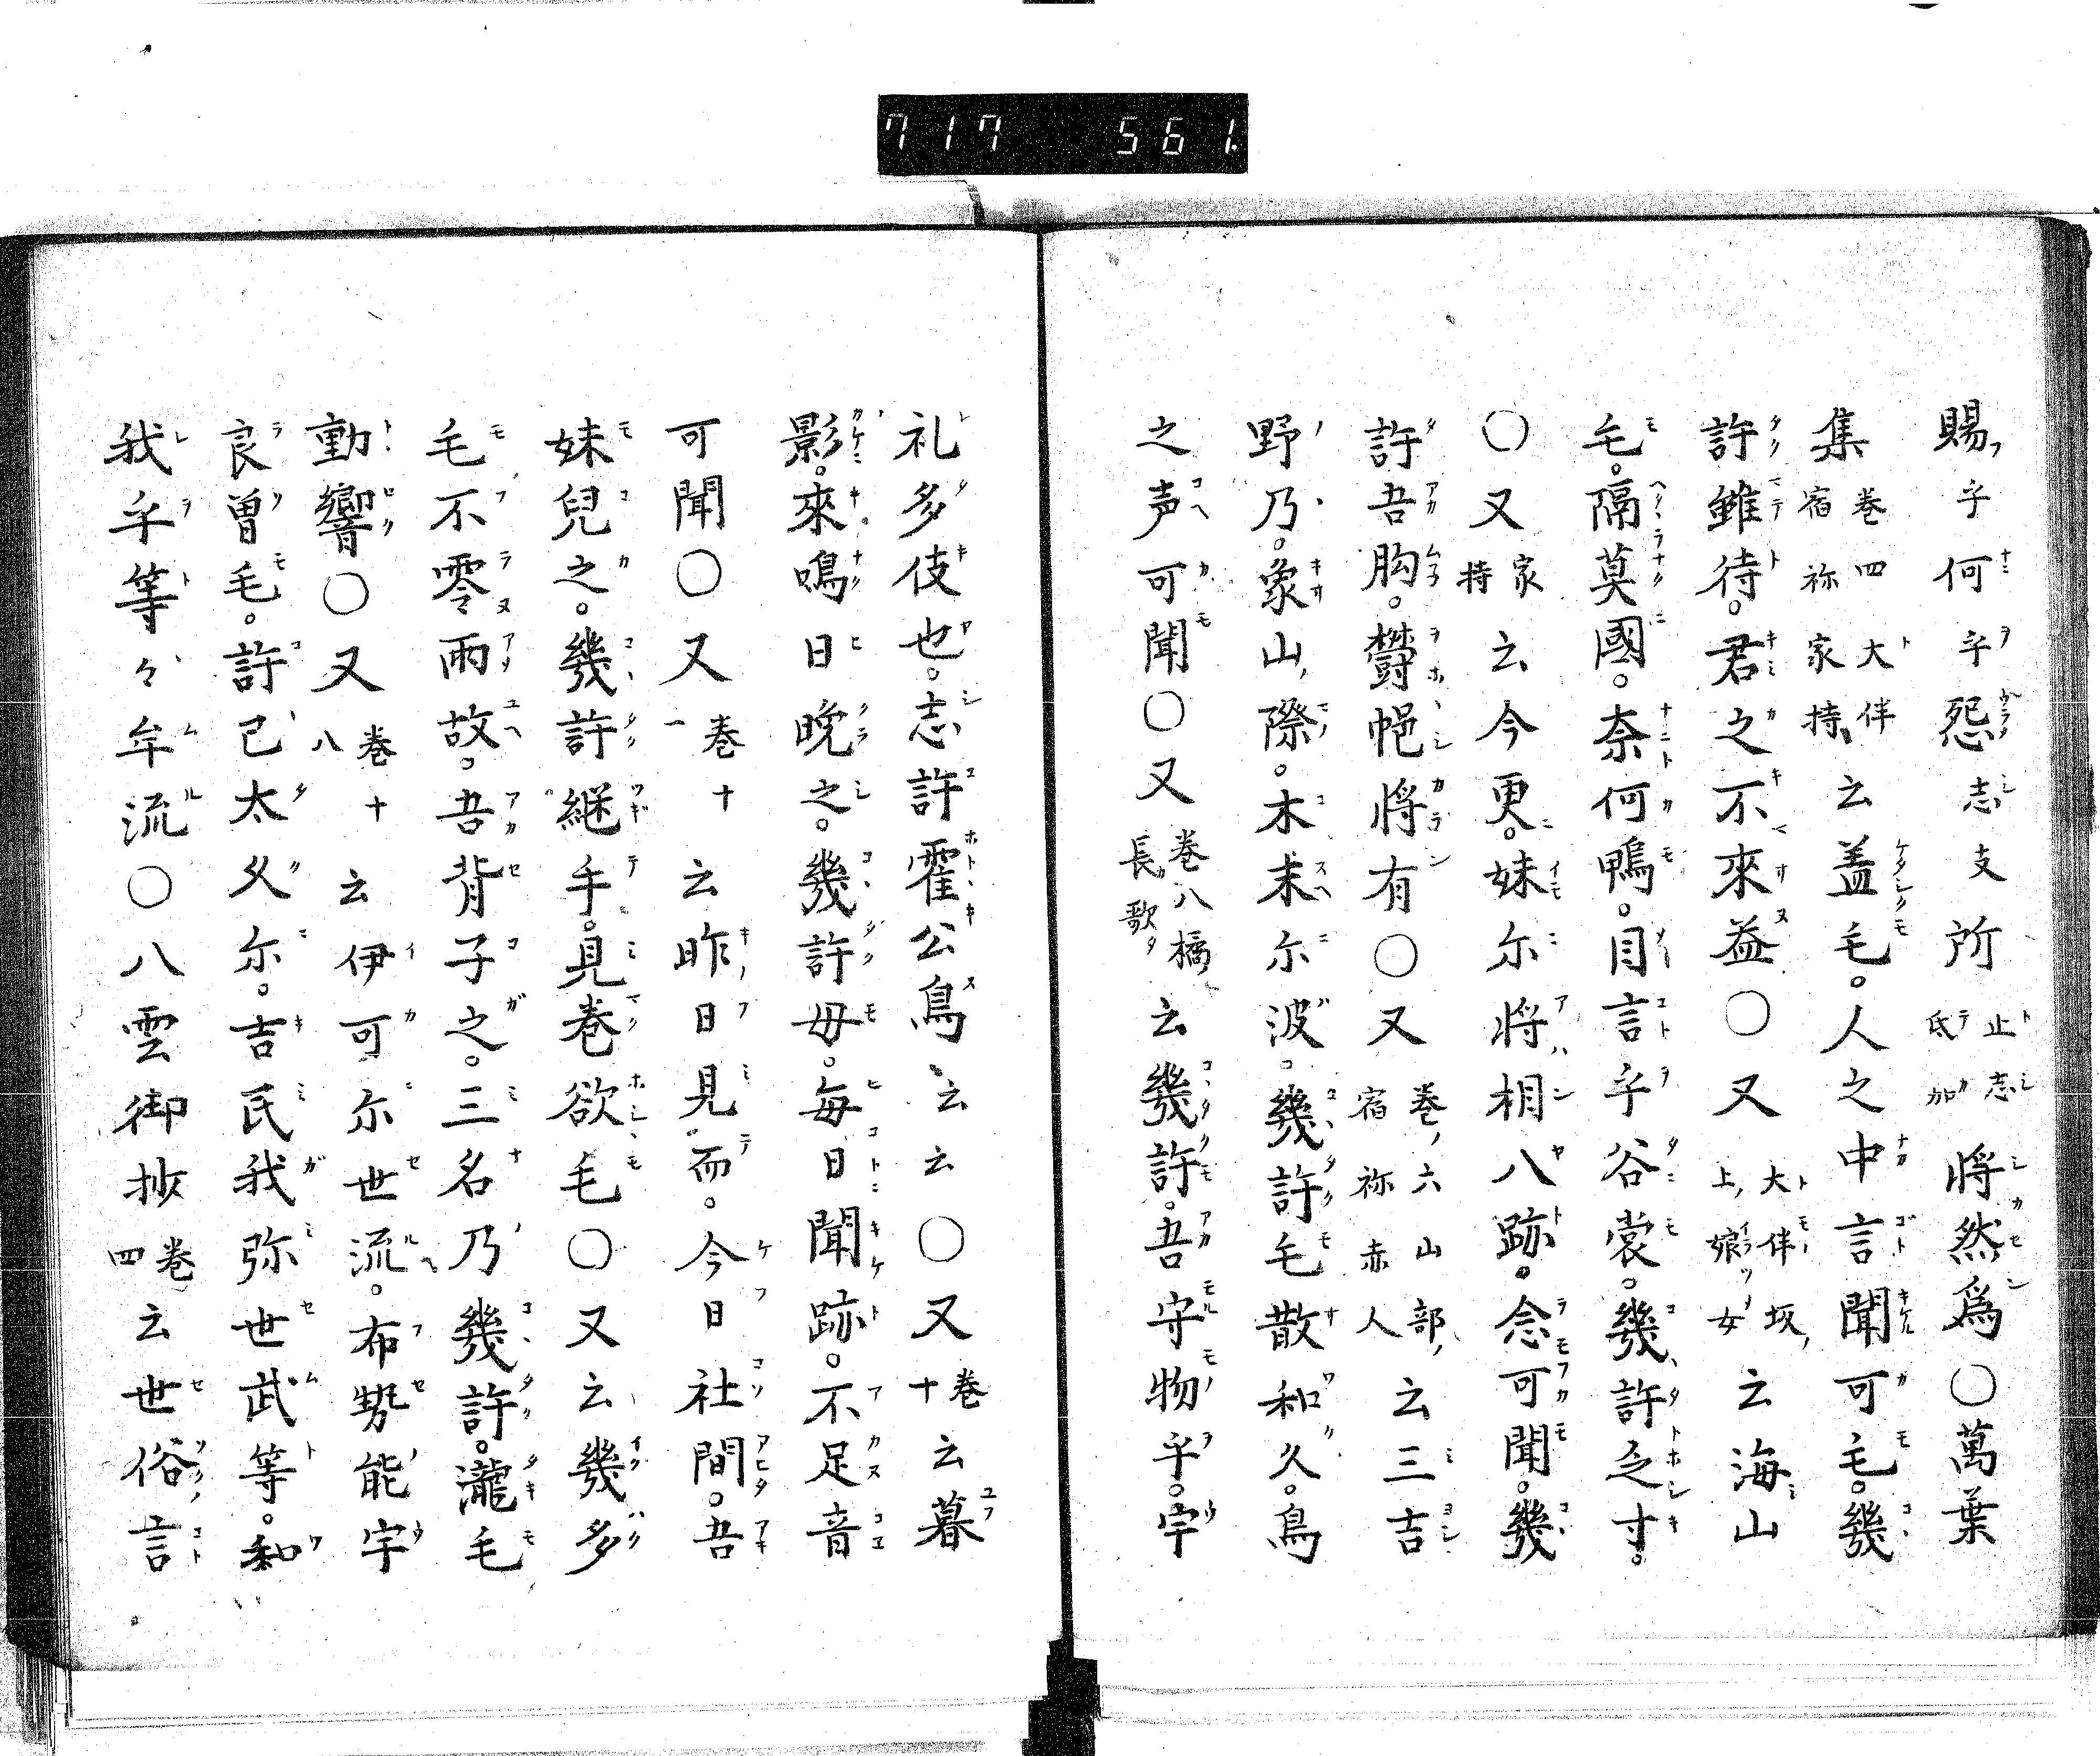 717 561.
賜乎何乎怨志支所止志氐加將然為〇萬葉
集巻四大伴宿祢家持云盖毛。人之中言聞可毛。幾
許雖待。君之不來益〇又大伴坂上娘女云海山
毛。隔莫國。奈何鴨。目言乎谷裳。幾許乏寸。
〇又家持云今更。妹尓將相八跡。念可聞。幾
許吾胸。欝悒將有〇又巻六山部宿祢赤人云三吉
野乃。象山際。木末尓波。幾許毛散和久。鳥
之声可聞〇又巻八橘長歌云幾許。吾守物乎。宇
礼多伎也。志許霍公鳥云云〇又巻十云暮
影。來鳴日晩之。幾許毋。毎日聞跡。不足音
可聞〇又巻十一云昨日見而。今日社間。吾
妹兒之。幾許継手。見巻欲毛〇又云幾多
毛不零雨故。吾背子之。三名乃幾許。瀧毛
動響〇又巻十八云伊可尓世流。布勢能宇
良曽毛。許己太久尓。吉民我弥世武等。和
我乎等々牟流〇八雲御抄巻四云世俗言